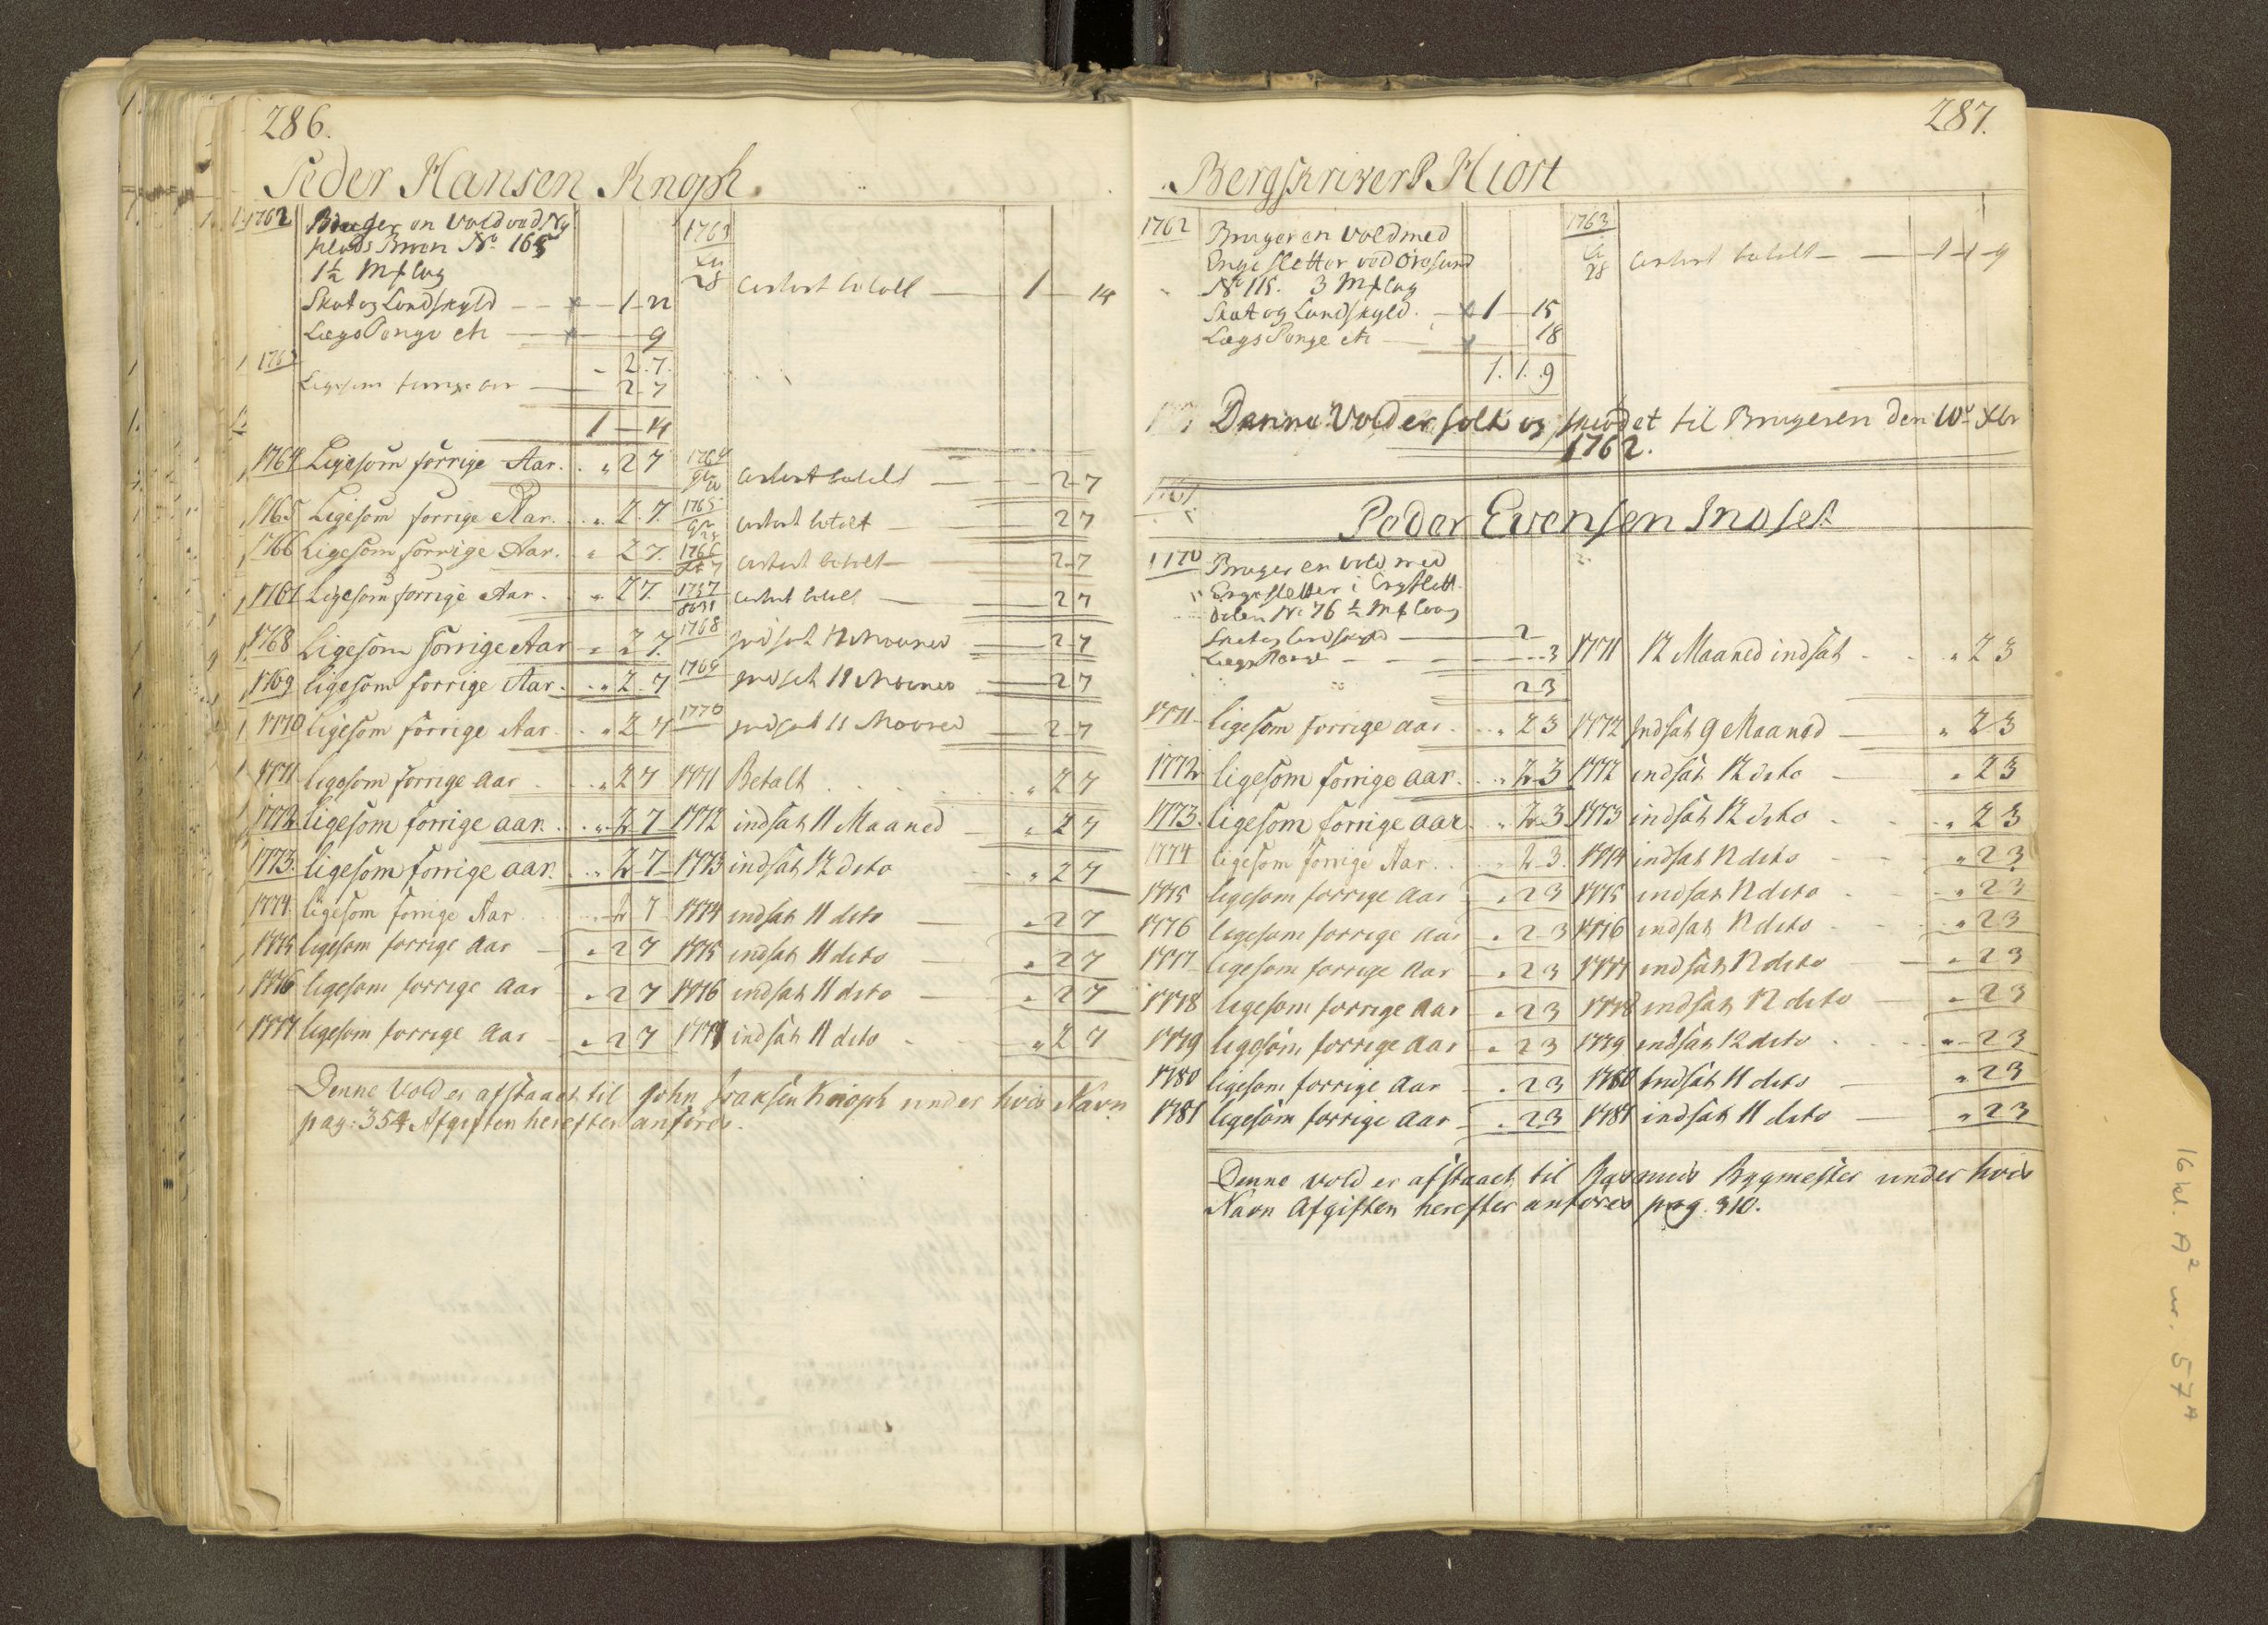 286.
Peder Hansen Knoph.
1762 Bruger en Vold ved Ny
plads Broen No. 165
1½ Mk lag
Skat og Landskyld — 1 — 22
Lægs Penge etc — 9
2. 7.
1763
Ligesom forrige aar — 2 7
1 — 14
1763
28 contant betalt — 1 — 14
1764 Ligesom forrige Aar. „ 2 7 1764 contant betalt — 2 7
1765 Ligesom forrige Aar. „ 2. 7. 1765 contant betalt — 2 7
1766 Ligesom forrige Aar. „ 2 7. 1766 contant betalt — 2 7
1767 Ligesom forrige Aar. „ 2 7. 1767 contant betalt — 2 7
1768 Ligesom forrige Aar „ 2 7. 1768 indsat 12 Maaned — 2 7
1769 ligesom forrige Aar. „ 2 7 1769 indsat 11 Maaned — 2 7
1770 ligesom forrige Aar. „ 2 7 1770 indsat 11 Maaned — 2 7
1771 ligesom forrige aar „ 2 7 1771 Betalt „ 2 7
1772 ligesom forrige aar. „ 2 7 1772 indsat 11 Maaned — „ 2 7
1773. ligesom forrige aar. „ 2 7 1773 indsat 12 dito „ 2 7
1774. ligesom forrige Aar 2 7 1774 indsat 11 dito — „ 2 7
1775 ligesom forrige Aar — „ 2 7 1775 indsat 11 dito — „ 2 7
1776 ligesom forrige Aar — „ 2 7 1776 indsat 11 dito — „ 2 7
1777 ligesom forrige Aar — „ 2 7 1777 indsat 11 dito „ 2 7
Denne Vold er afstaaet til John Isaksen Knoph under hvis Navn
pag: 354 Afgiften herefter anføres.
287.
Bergskriver P. Hiort
1762 Bruger en Vold med
Enge sletter ved Øresund
No 115. 3 Mk lag
Skat og Landskyld. — 1 — 15
Lægs Penge etc — 18
1. 1. 9
1763
28 contant betalt — 1 — 1 — 9
Denne Vold er solt og skiødet til Brugeren den 10de Xbr
1762.
Peder Evensen Indset
1770 Bruger en vold med
Enge sletter i Engslett
dalen No 76 ½ Mk laug
Skat og Landskyld — 2
Lægs Penge — 3
2 3
1771 12 Maaned indsat „ 2 3
1771 ligesom forrige aar „ 2 3 1772 Indsat 9 Maaned — „ 2 3
1772 ligesom forrige aar. „ 2 3 1772 indsat 12 dito — „ 2 3
1773. ligesom forrige aar „ 2 3 1773 indsat 12 dito „ 2 3
1774 ligesom forrige Aar. „ 2 3. 1774 indsat 12 dito — „ 2 3
1775 ligesom forrige Aar „ 2 3 1775 indsat 12 dito „ 2 3
1776 ligesom forrige Aar „ 2 3 1776 indsat 12 dito „ 2 3
1777 ligesom forrige Aar — „ 2 3 1777 indsat 12 dito — „ 2 3
1778 ligesom forrige Aar — „ 2 3 1778 indsat 12 dito — „ 2 3
1779 ligesom forrige Aar — „ 2 3 1779 indsat 12 dito „ 2 3
1780 ligesom forrige Aar — „ 2 3 1780 Indsat 11 dito — „ 2 3
1781 ligesom forrige Aar — „ 2 3 1781 indsat 11 dito — „ 2 3
Denne vold er afstaaet til Rasmus Bygmester under hvis
Navn Afgiften herefter anføres pag. 310.
16 kl. A2 nr. 57A